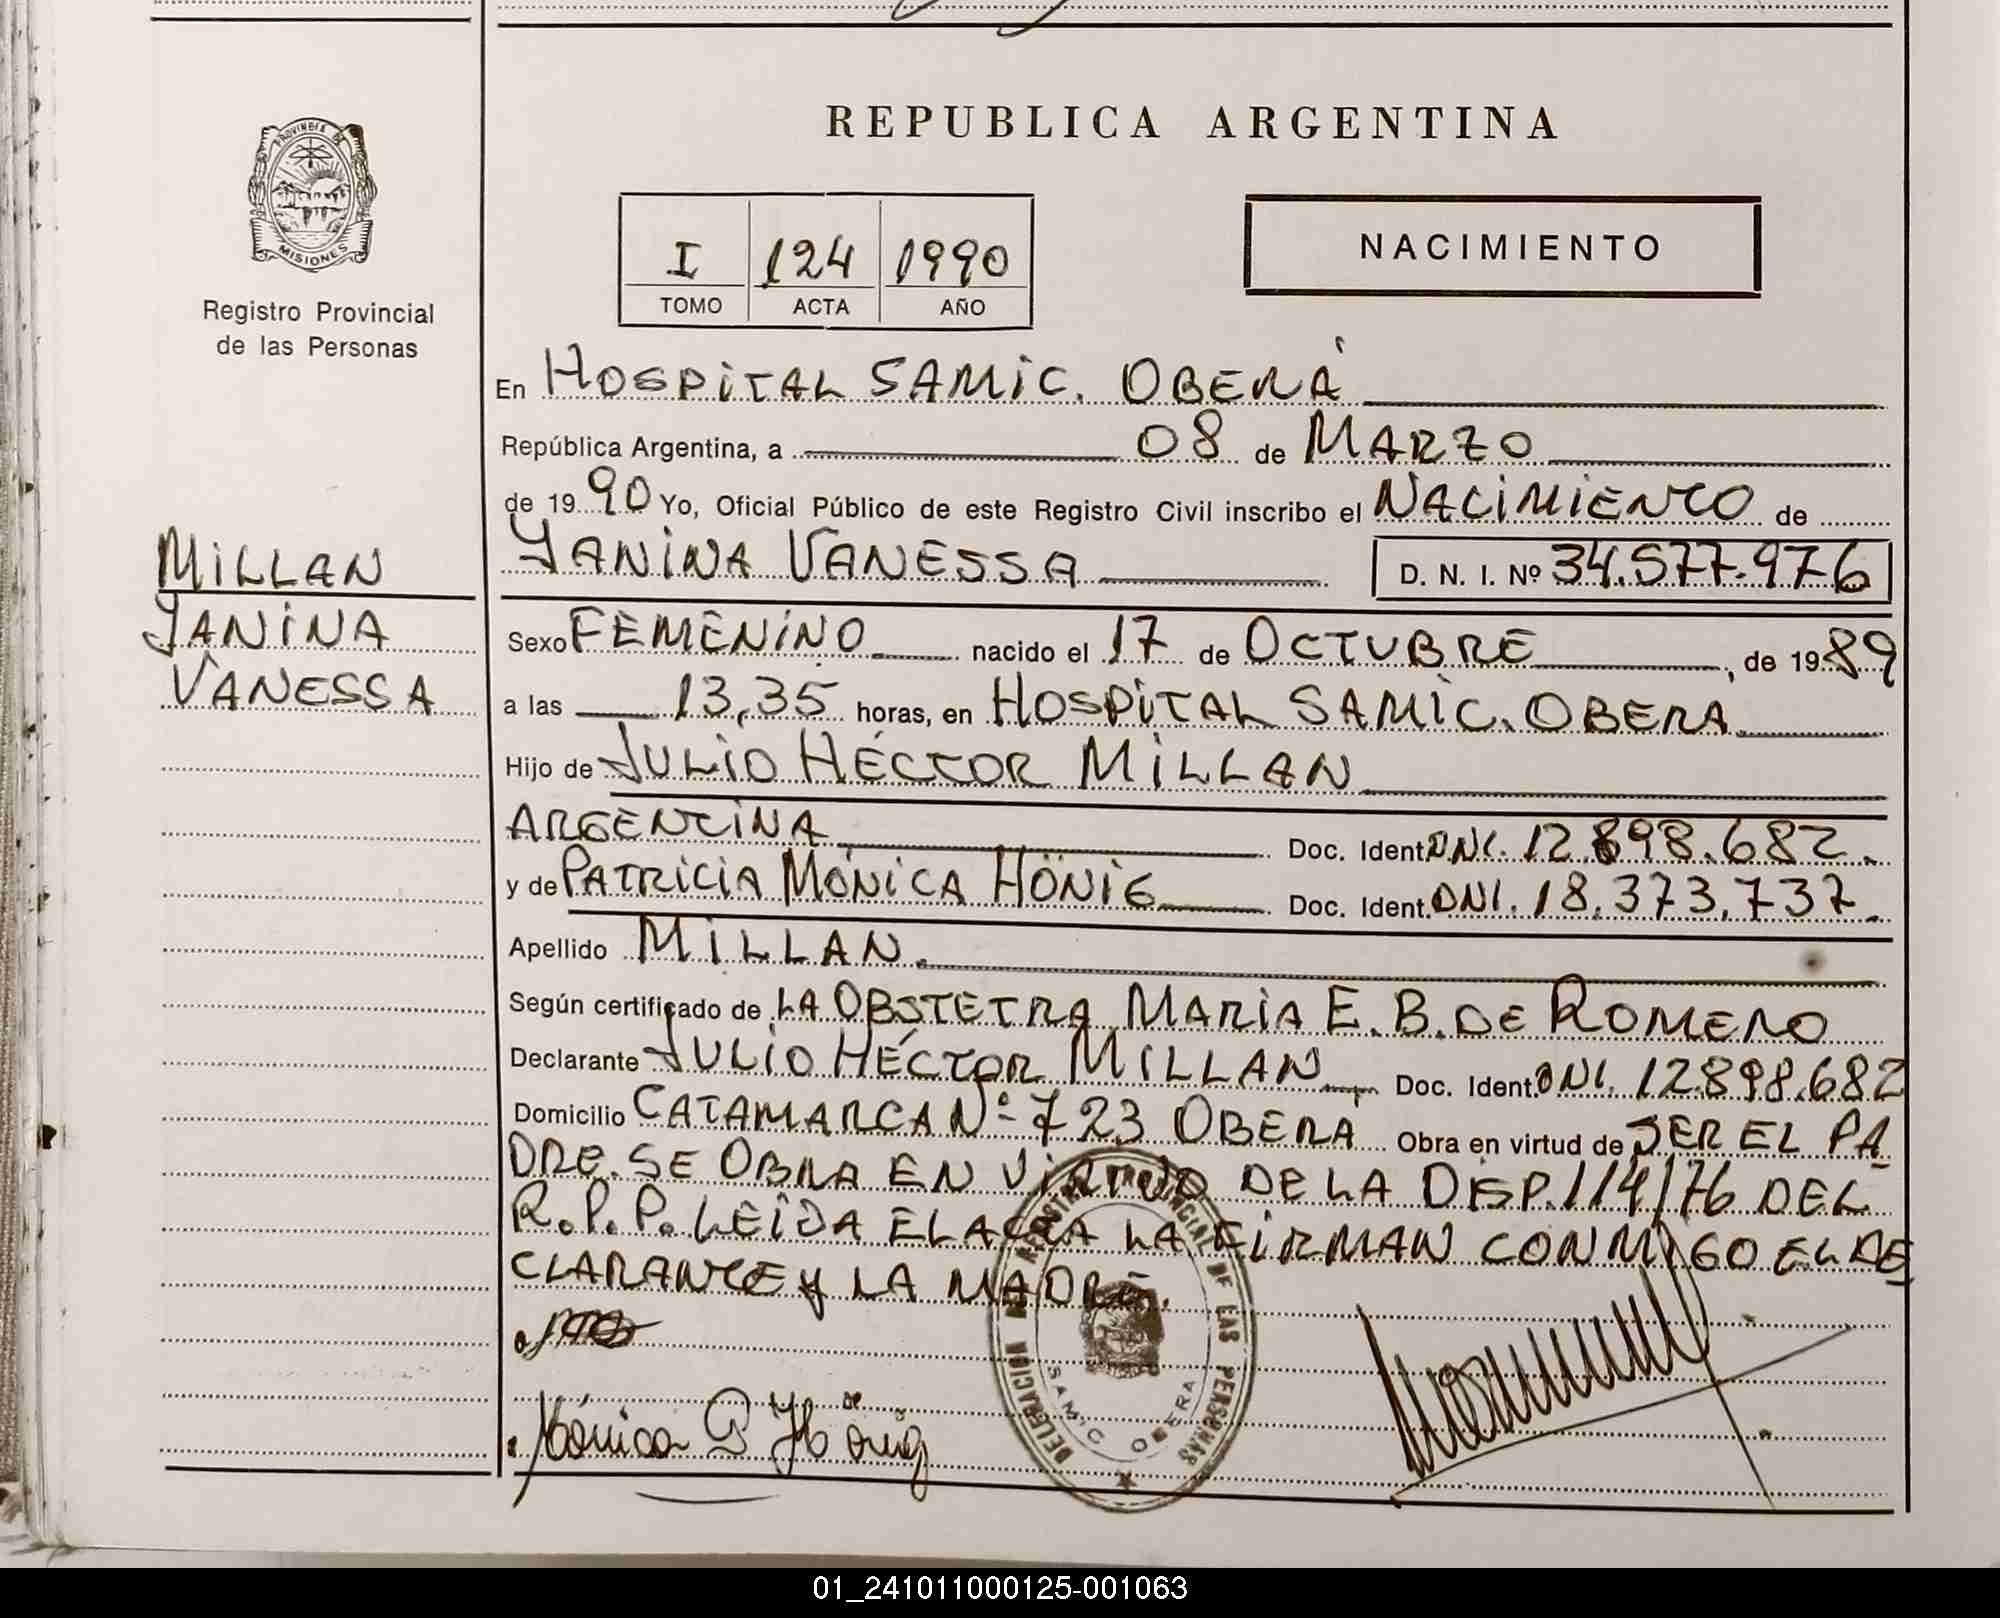 REPUBLICA ARGENTINA
PROVINCIA DE
MISIONES
Registro Provincial
de las Personas
I 124 1990
TOMO ACTA AÑO
NACIMIENTO
En HOSPITAL SAMIC. OBERÁ
República Argentina, a 08 de MARZO
de 1990 Yo, Oficial Público de este Registro Civil inscribo el NACIMIENTO de
MILLAN
YANINA
VANESSA
YANINA VANESSA D. N. I. Nº 34.577.976
Sexo FEMENINO nacido el 17 de OCTUBRE, de 1989
a las 13,35 horas, en HOSPITAL SAMIC. OBERA
Hijo de JULIO HÉCTOR MILLAN
ARGENTINA Doc. Ident. DNI. 12.898.682.
y de PATRICIA MÓNICA HÖNIG Doc. Ident. DNI. 18.373.737.
Apellido MILLAN.
Según certificado de LA OBSTETRA MARIA E. B. DE ROMERO
Declarante JULIO HÉCTOR MILLAN Doc. Ident. DNI. 12.898.682
Domicilio CATAMARCA Nº 723 OBERÁ Obra en virtud de SER EL PA
DRE. SE OBRA EN VIRTUD DE LA DISP. 114/76 DEL
R.P.P. LEIDA EL ACTA LA FIRMAN CONMIGO EL DE
CLARANTE y LA MADRE.
Mónica P de Hönig
DELEGACION REGISTRO PROVINCIAL DE LAS PERSONAS
SAMIC OBERA
01_241011000125-001063